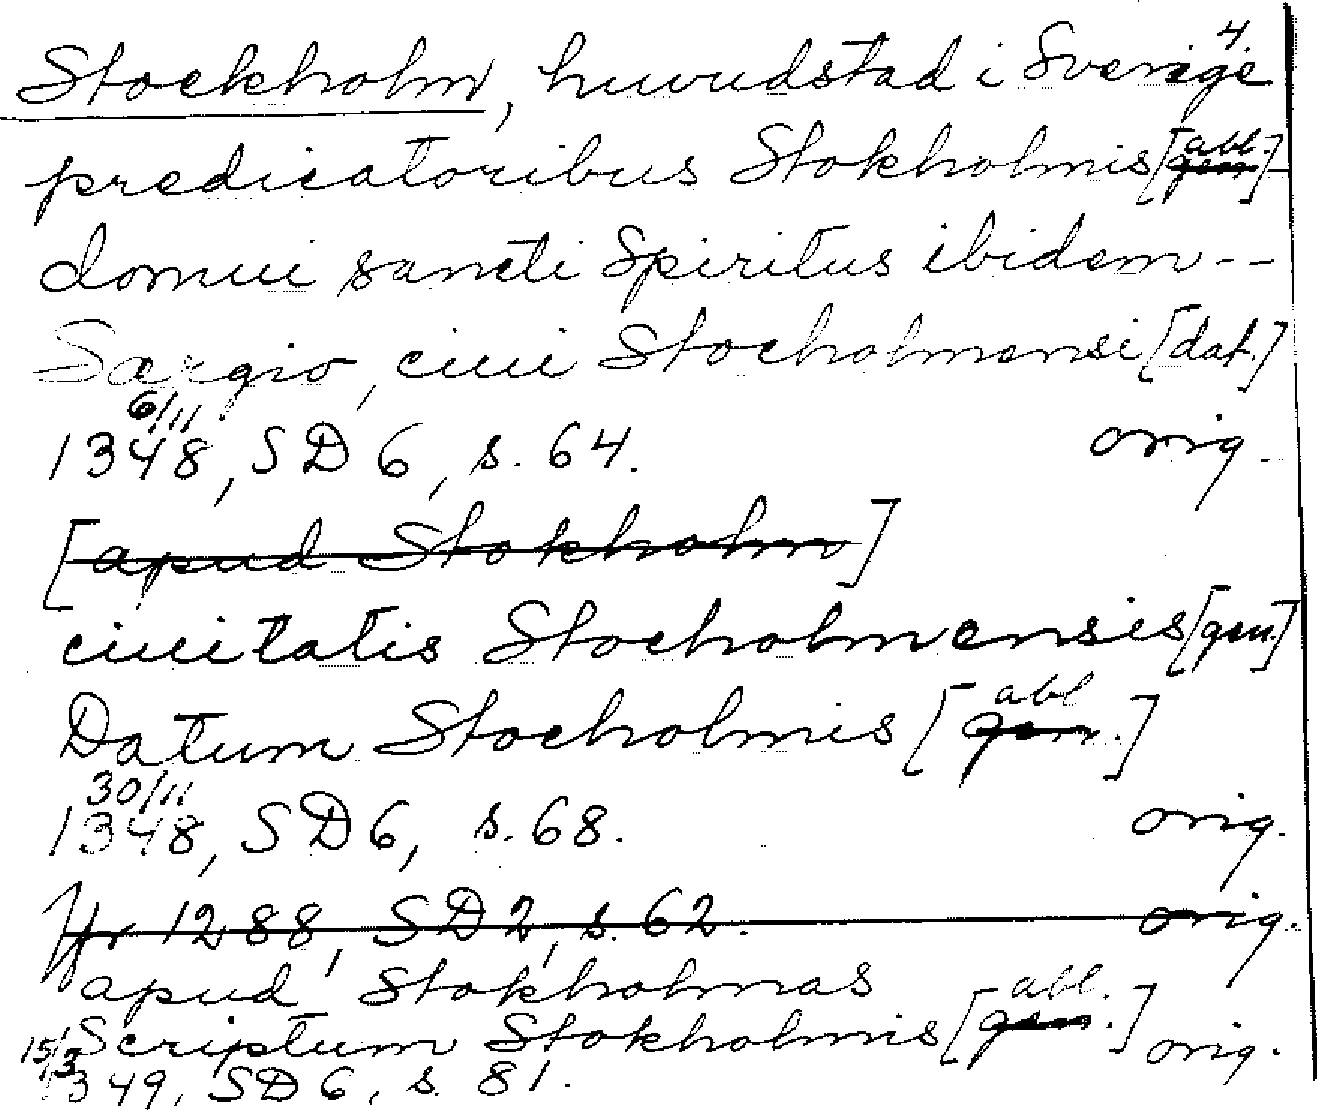 4.
Stockholm, huvudstad i Sverige
predicatoribus Stokholmis [abl. gen.]
domui sancti Spiritus ibidem --
Særgio, ciui Stocholmensi [dat.]
6/11
1348, SD 6, s. 64. orig.
[apud Stokholm]
ciuitatis Stocholmensis [gen.]
Datum Stocholmis [abl gen.]
30/11
1348, SD 6, s. 68. orig.
Jfr 1288, SD 2, s. 62. orig.
apud Stokholmas
Scriptum Stokholmis [abl. gen.] orig.
15/3
1349, SD 6, s. 81.